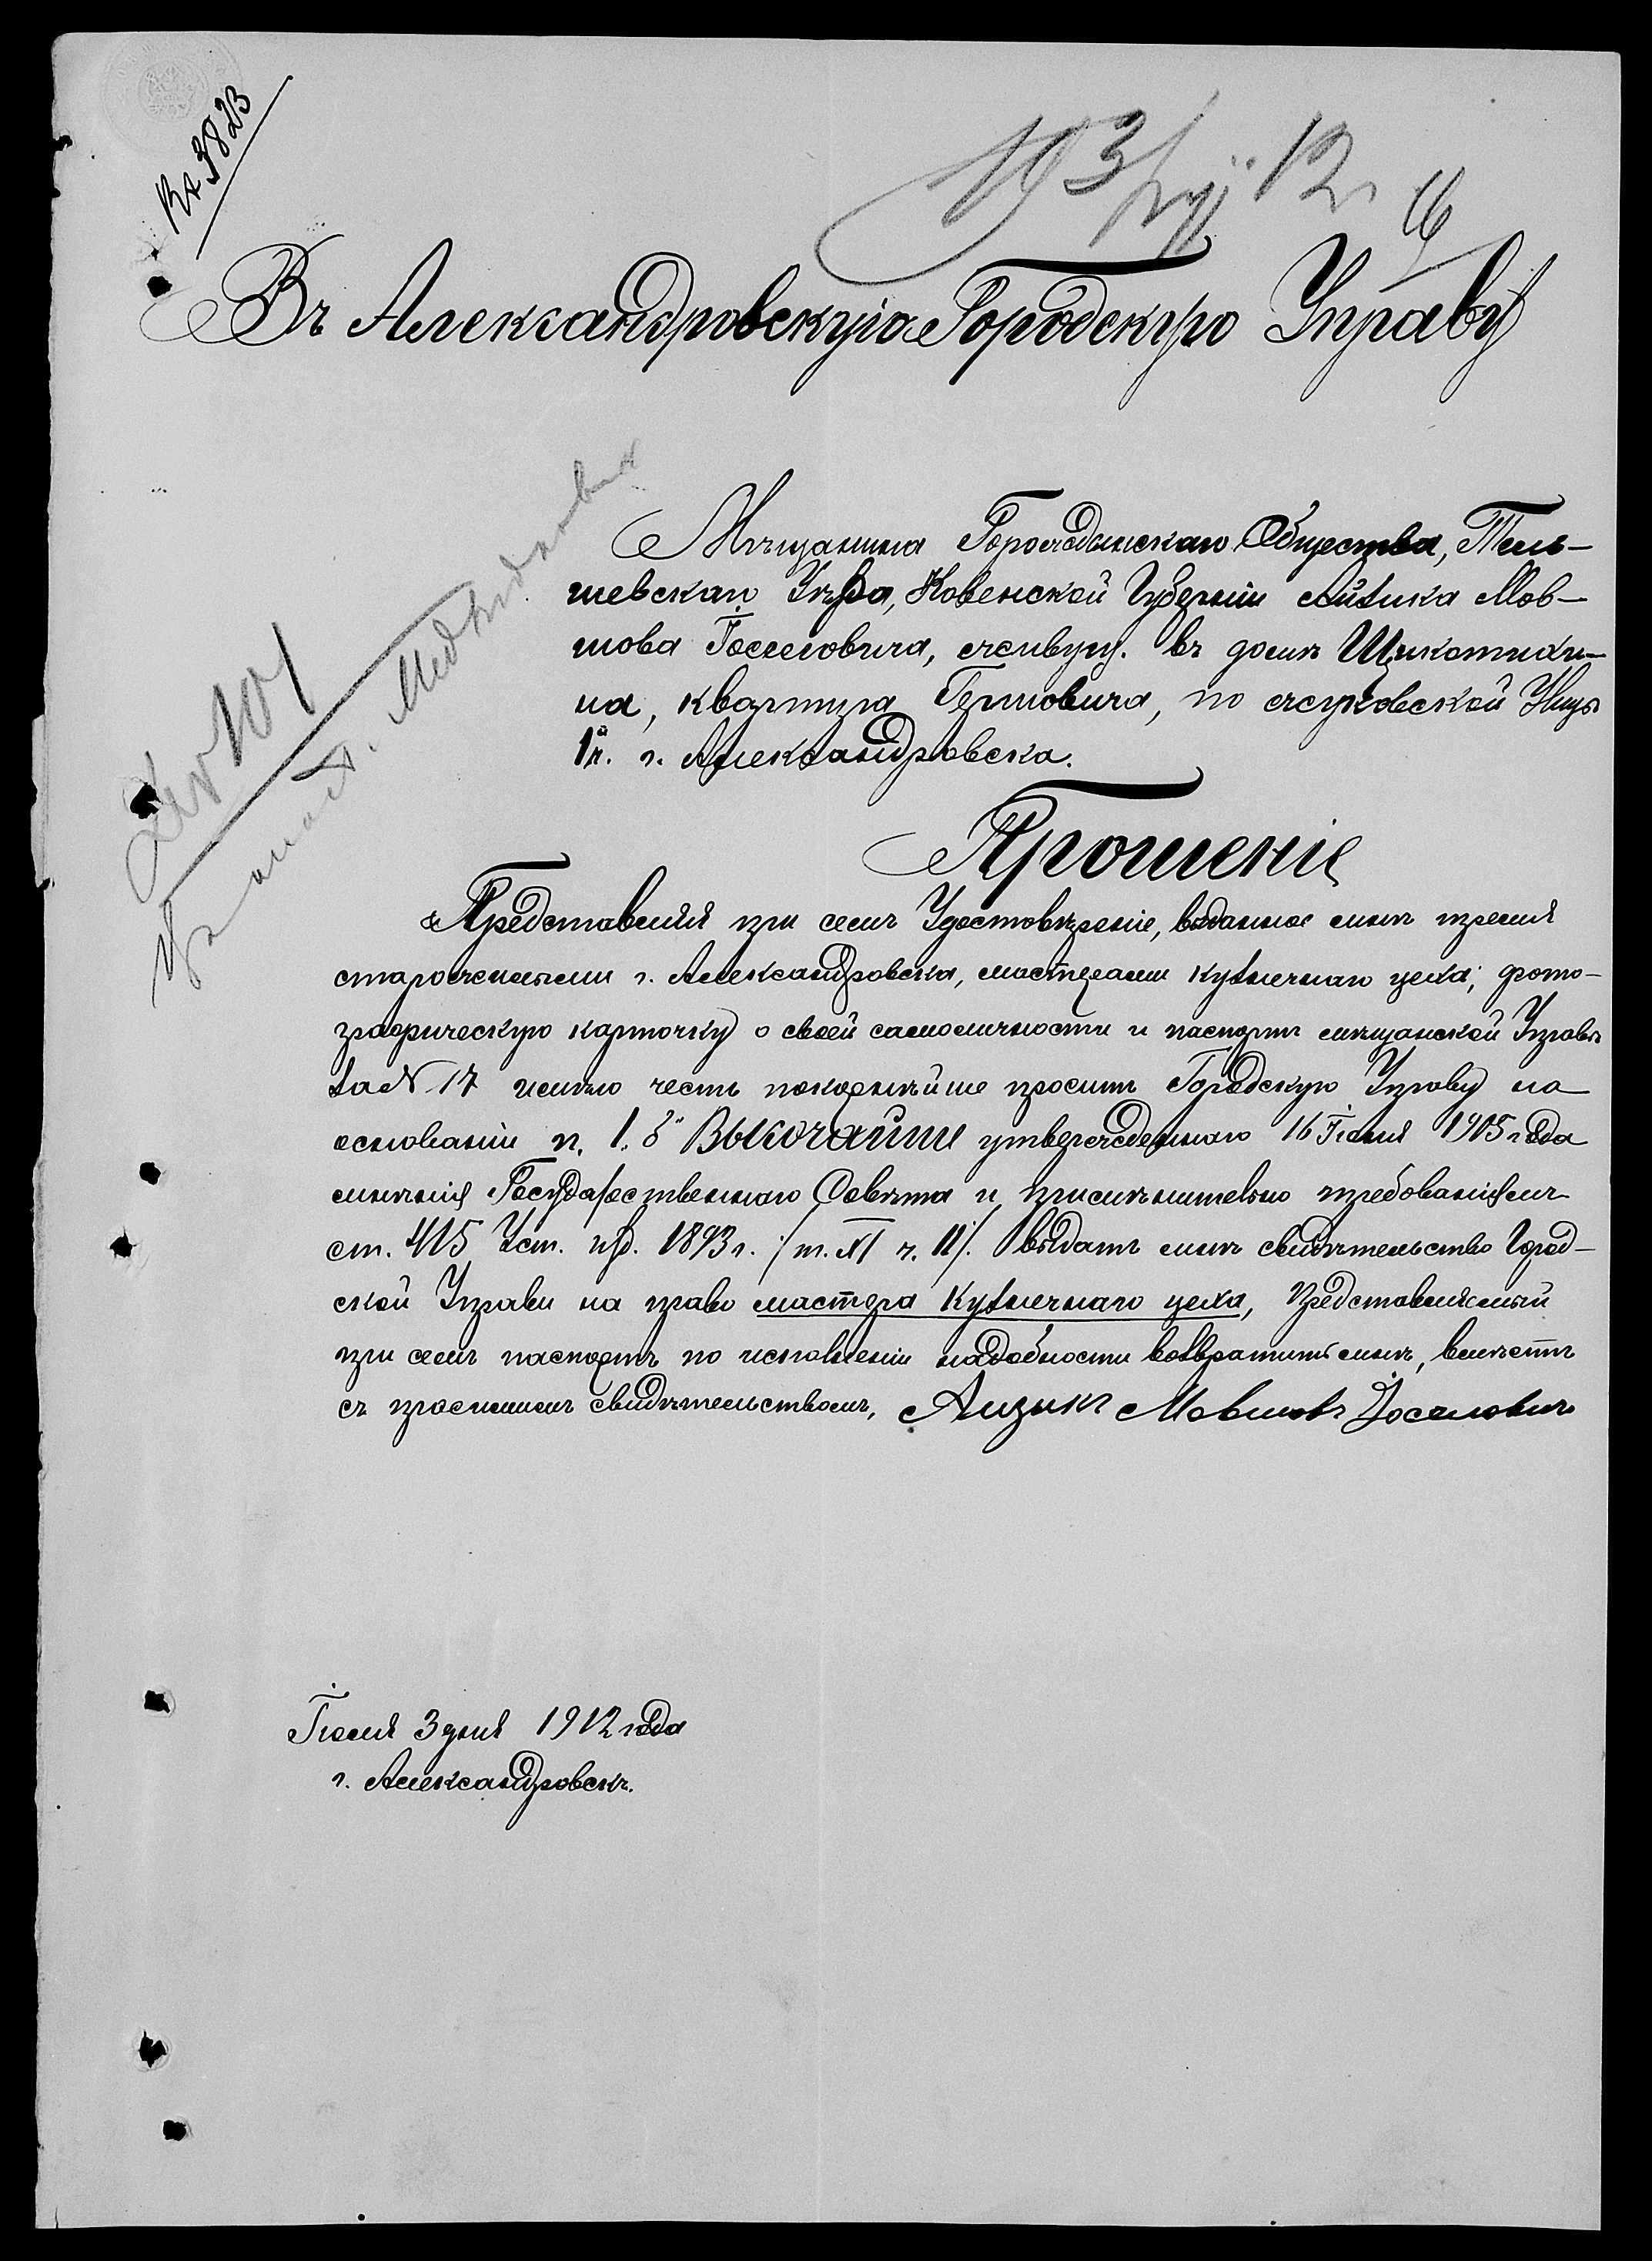 Вх 3823
193/VII 12 г.
Въ Александровскую Городскую Управу
Мѣщанина Горождинскаго Общества, Тель-
шевскаго Уѣзда, Ковенской Губерніи Айзика Мов-
шова Іоселовича, живущ. въ домѣ Щикотихи-
на, квартира Гершовича, по жуковской Улицѣ
1й ч. г. Александровска.
Прошеніе
Представляя при семъ Удостовѣреніе, выданное мнѣ тремя
старожилыми г. Александровска, мастерами кузнечнаго цеха; фото-
графическую карточку о своей самоличности и паспортъ мѣщанской Управы
за № 17 имѣю честь покорнѣйше просить Городскую Управу на
основаніи п. 1. б" Высочайше утвержденнаго 16 Іюня 1905 года
мнѣнія Государственнаго Совѣта и примѣнительно требованіямъ
ст. 415 Уст. изд. 1893 г. /т. XI ч. II/. выдать мнѣ свидѣтельство Город-
ской Управы на право мастера кузнечнаго цеха, Представляемый
при семъ паспортъ по исполненіи надобности возвратить мнѣ, вмѣстѣ
съ просимымъ свидѣтельствомъ, Айзикъ Мовшовъ Іоселовичъ
Іюля 3 дня 1912 года
г. Александровскъ.